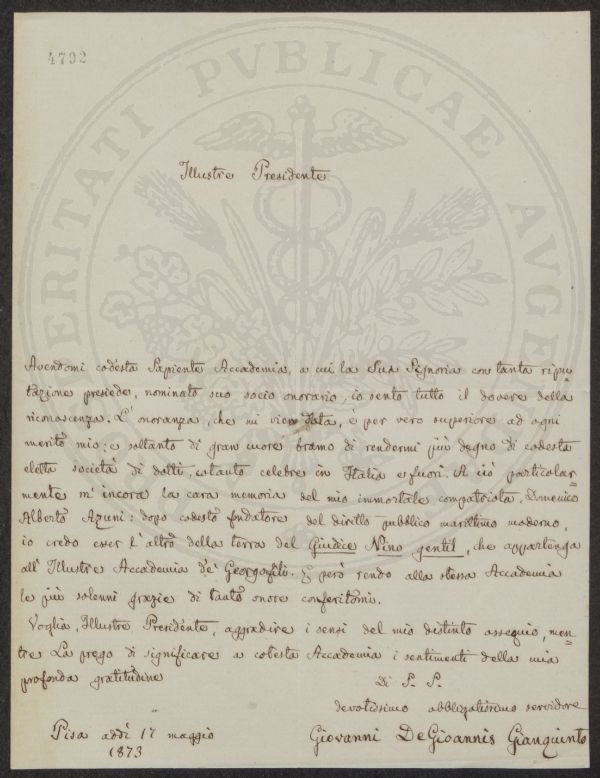 4792
PROSPERITATI PVBLICAE AVGENDAE
Illustre Presidente
Avendomi codesta Sapiente Accademia, a cui la Sua Signoria con tanta ripu=
tazione presiede, nominato suo socio onorario, io sento tutto il dovere della
riconoscenza. L'onoranza, che mi vien data, è per vero superiore ad ogni
merito mio; e soltanto di gran cuore bramo di rendermi più degno di codesta
eletta società di dotti, cotanto celebre in Italia e fuori. A ciò particolar=
mente m'incora la cara memoria del mio immortale compatriota, Domenico
Alberto Azuni: dopo codesto fondatore del diritto pubblico marittimo moderno,
io credo esser l'altro della terra del Giudice Nino gentil, che appartenga
all'Illustre Accademia de' Georgofili. E però rendo alla stessa Accademia
le più solenni grazie di tanto onore conferitomi.
Voglia, Illustre Presidente, aggradire i sensi del mio distinto ossequio, men=
tre La prego di significare a cotesta Accademia i sentimenti della mia
profonda gratitudine
Di S. S.
devotissimo obbligatissimo servidore
Pisa addì 17 maggio
1873
Giovanni DeGioannis Gianquinto